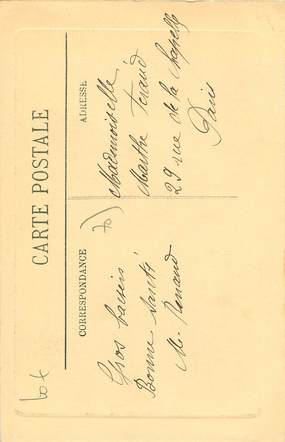 CARTE POSTALE
CORRESPONDANCE
Gros baisers
Bonne Santé
M. Renaud
ADRESSE
Mademoiselle
Marthe
29 rue de la Chapelle
Paris
lot